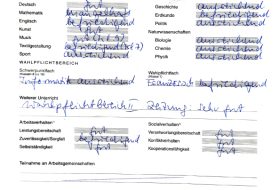 Deutsch gut Geschichte ausreichend
Mathematik Erdkunde befriedigend
Englisch befriedigend Politik ausreichend
Kunst gut NATURWISSENSCHAFTEN
Musik gut Biologie ausreichend
Textilgestaltung befriedigend (K7) Chemie ausreichend
Sport ausreichend Physik ausreichend
WAHLPFLICHTBEREICH
Schwerpunktfach Wahlpflichtfach
Informatik ausreichend Französisch befriedigend
Weiterer Unterricht
Wahlpflichtbereich II Zeitung: sehr gut
Arbeitsverhalten Sozialverhalten
Leistungsbereitschaft gut Verantwortungsbereitschaft gut
Zuverlässigkeit/Sorgfalt befriedigend Konfliktverhalten gut
Selbständigkeit gut Kooperationsfähigkeit gut
Teilnahme an Arbeitsgemeinschaften